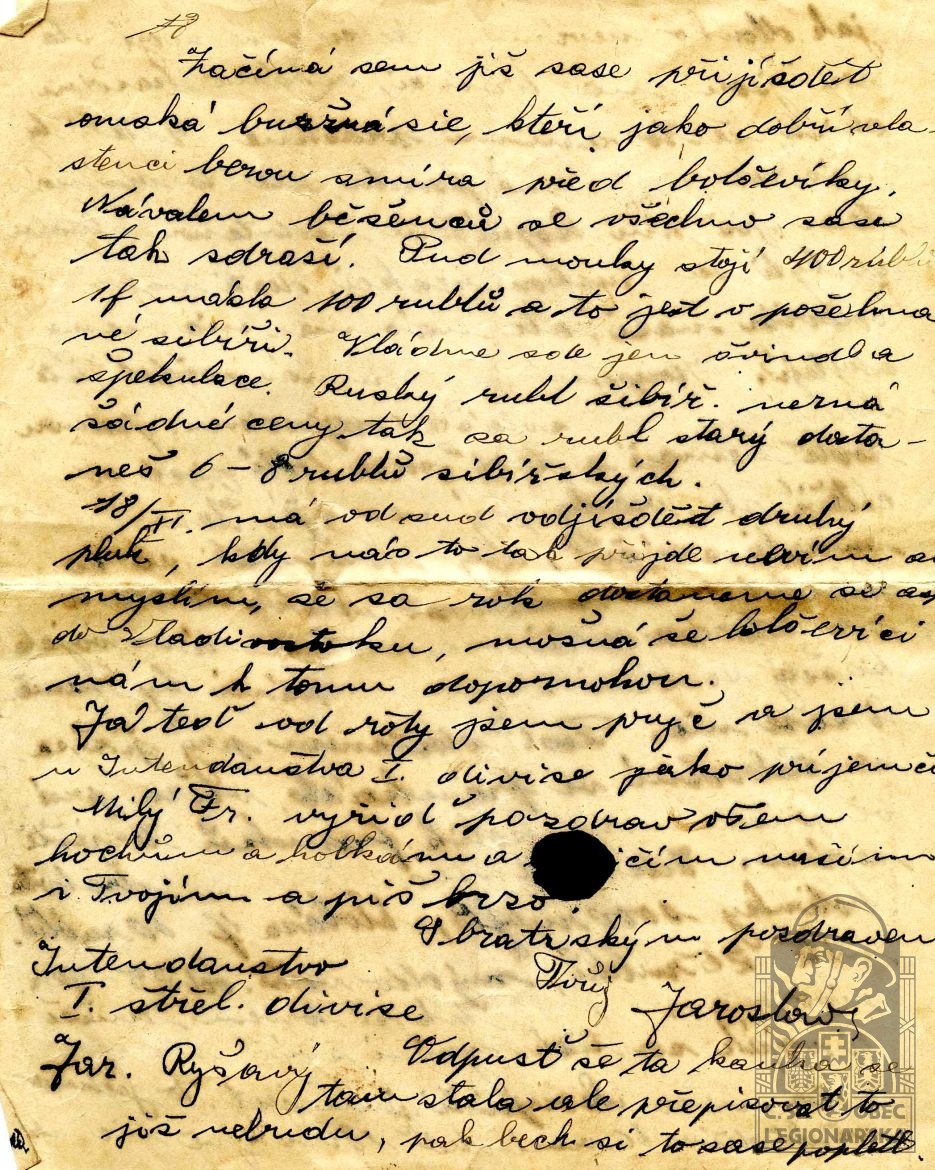 Začíná sem jiš sase přijíšdět
omská buržuásie, kteří jako dobří vla-
stenci berou smíra před bolševíky.
Návalem běšenců se všechno sase
tak sdraší. Pud mouky stojí 400 rublů
1f másla 100 rublů a to jest v pošehna
né sibíři. Vládne sde jen švindl a
špekulace. Ruský rubl šibíř. nemá
šádné ceny tak sa rubl starý dosta-
neš 6-8 rublů sibířských.
18/XI. má od sud vodjíšdět druhý
pluk, kdy nás to tak přijde nevím
myslím, še sa rok dostaneme se
do Vladivostoku, mošná še bolševíci
nám k tomu dopomohou.
Já teď od róty jsem pryč a jsem
u Intendanstva I. divise jako příjemčí
Milý Fr. vyřiď pozdrav všem
hochům a holkám a našim
i Tvojím a piš brso.
S bratrským pozdravem
Tvůj Jaroslav
Intendanstvo
I. střel. divise
Jar. Ryšavý
Odpusť še ta kaňka se
tam stala ale přepisovat to
jiš nebudu, pak bech si to sase popletl.
Č OBEC
LEGIONÁŘSKÁ